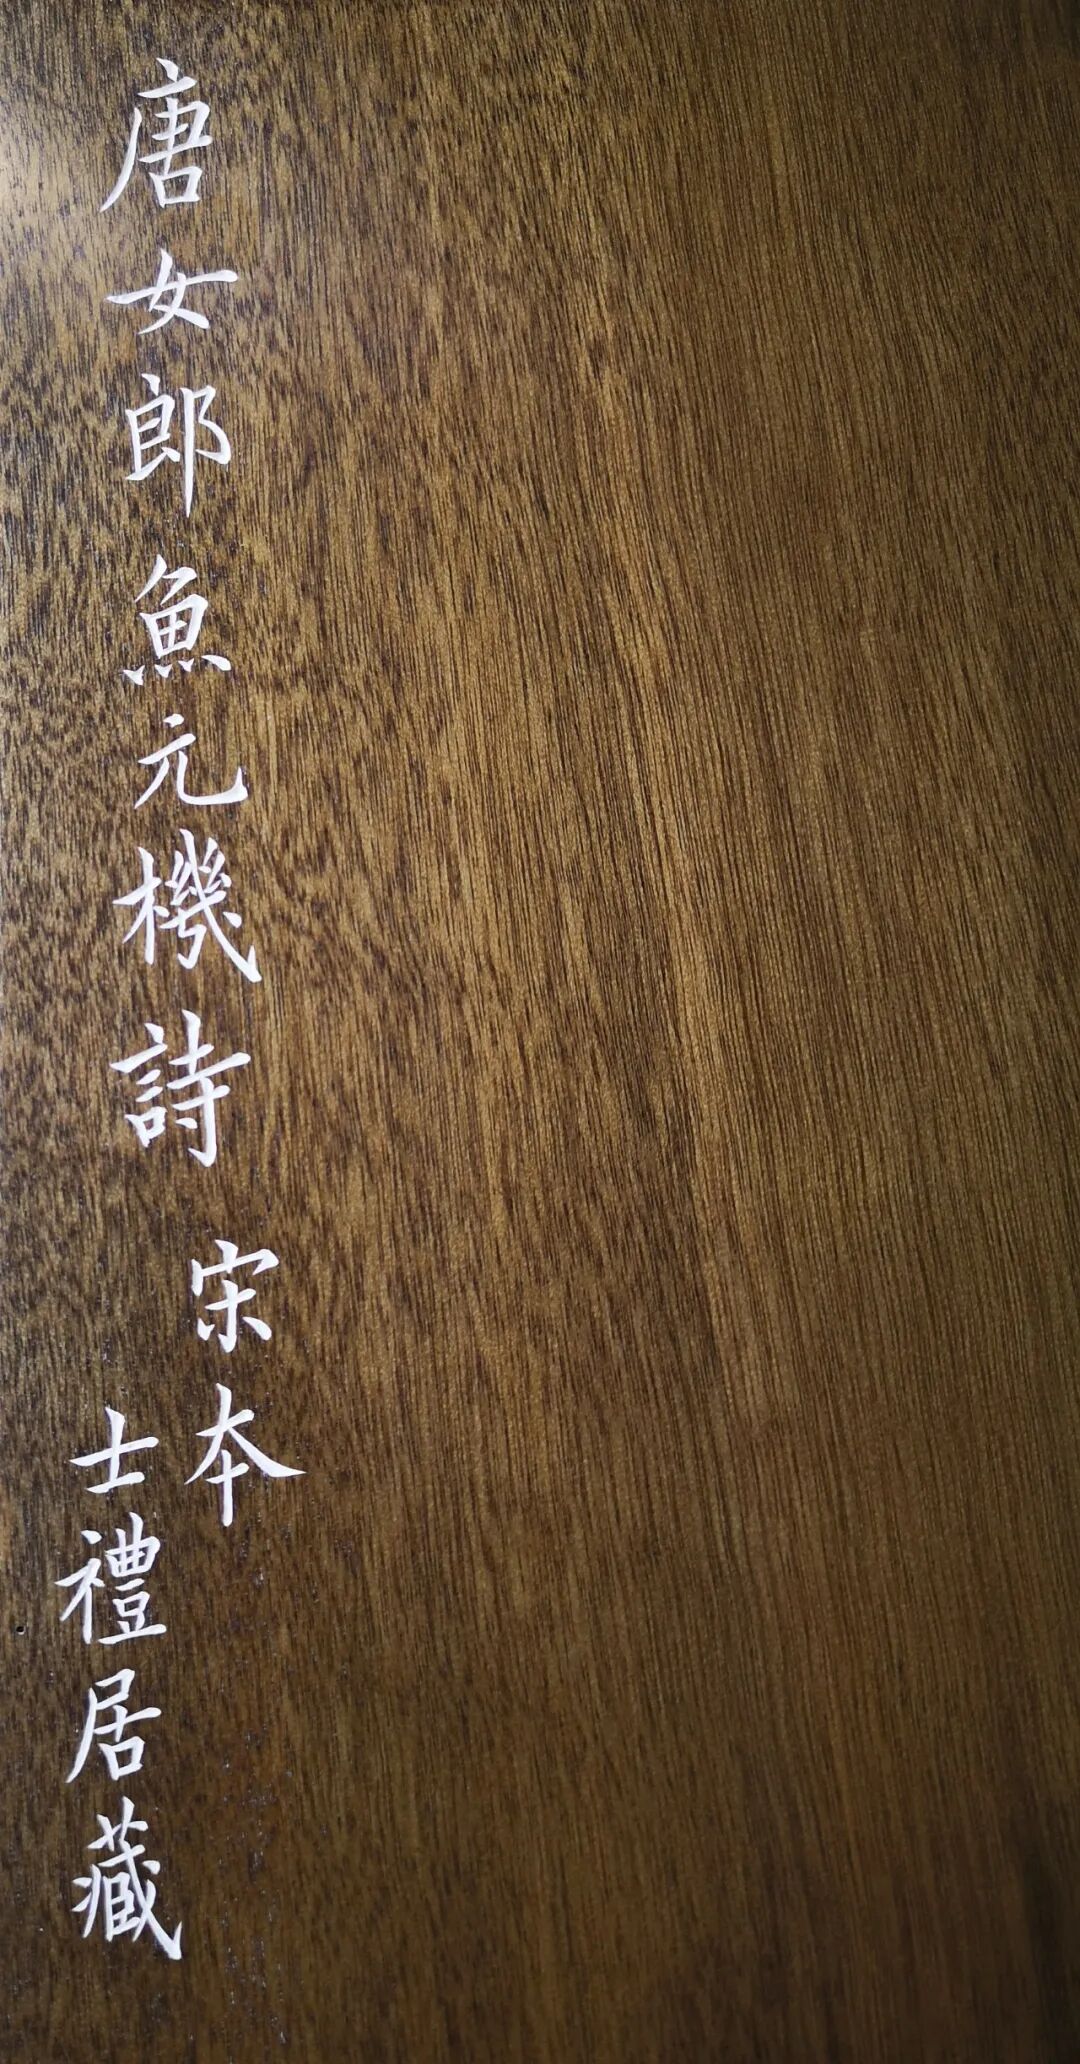 唐女郎魚元機詩
宋本
士禮居藏